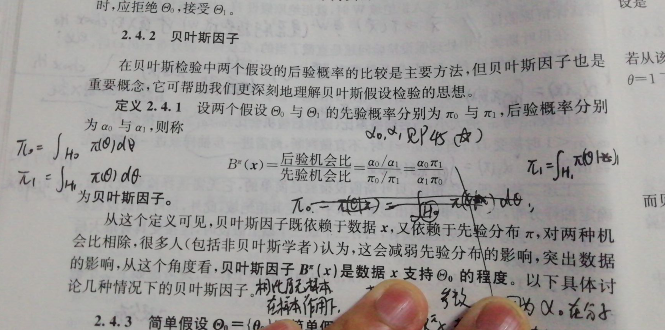 时,应拒绝Θ₀,接受Θ₁。
设是
2.4.2 贝叶斯因子
在贝叶斯检验中两个假设的后验概率的比较是主要方法,但贝叶斯因子也是
若从该
重要概念,它可帮助我们更深刻地理解贝叶斯假设检验的思想。
θ=1
定义 2.4.1 设两个假设Θ₀与Θ₁的先验概率分别为π₀与π₁,后验概率分别
为α₀与α₁,则称
α₀,α₁见P45
π₀=∫H₀ π(θ)dθ
B^π(x)=后验机会比/先验机会比=(α₀/α₁)/(π₀/π₁)=α₀π₁/α₁π₀
π₁=∫H₁
π₁=∫H₁ π(θ)dθ
为贝叶斯因子。
而贝
从这个定义可见,贝叶斯因子既依赖于数据x,又依赖于先验分布π,对两种机
会比相除,很多人(包括非贝叶斯学者)认为,这会减弱先验分布的影响,突出数据
的影响,从这个角度看,贝叶斯因子B^π(x)是数据x支持Θ₀的程度。以下具体讨
论几种情况下的贝叶斯因子。
在样本作用下
2.4.3 简单假设Θ₀={θ₀}